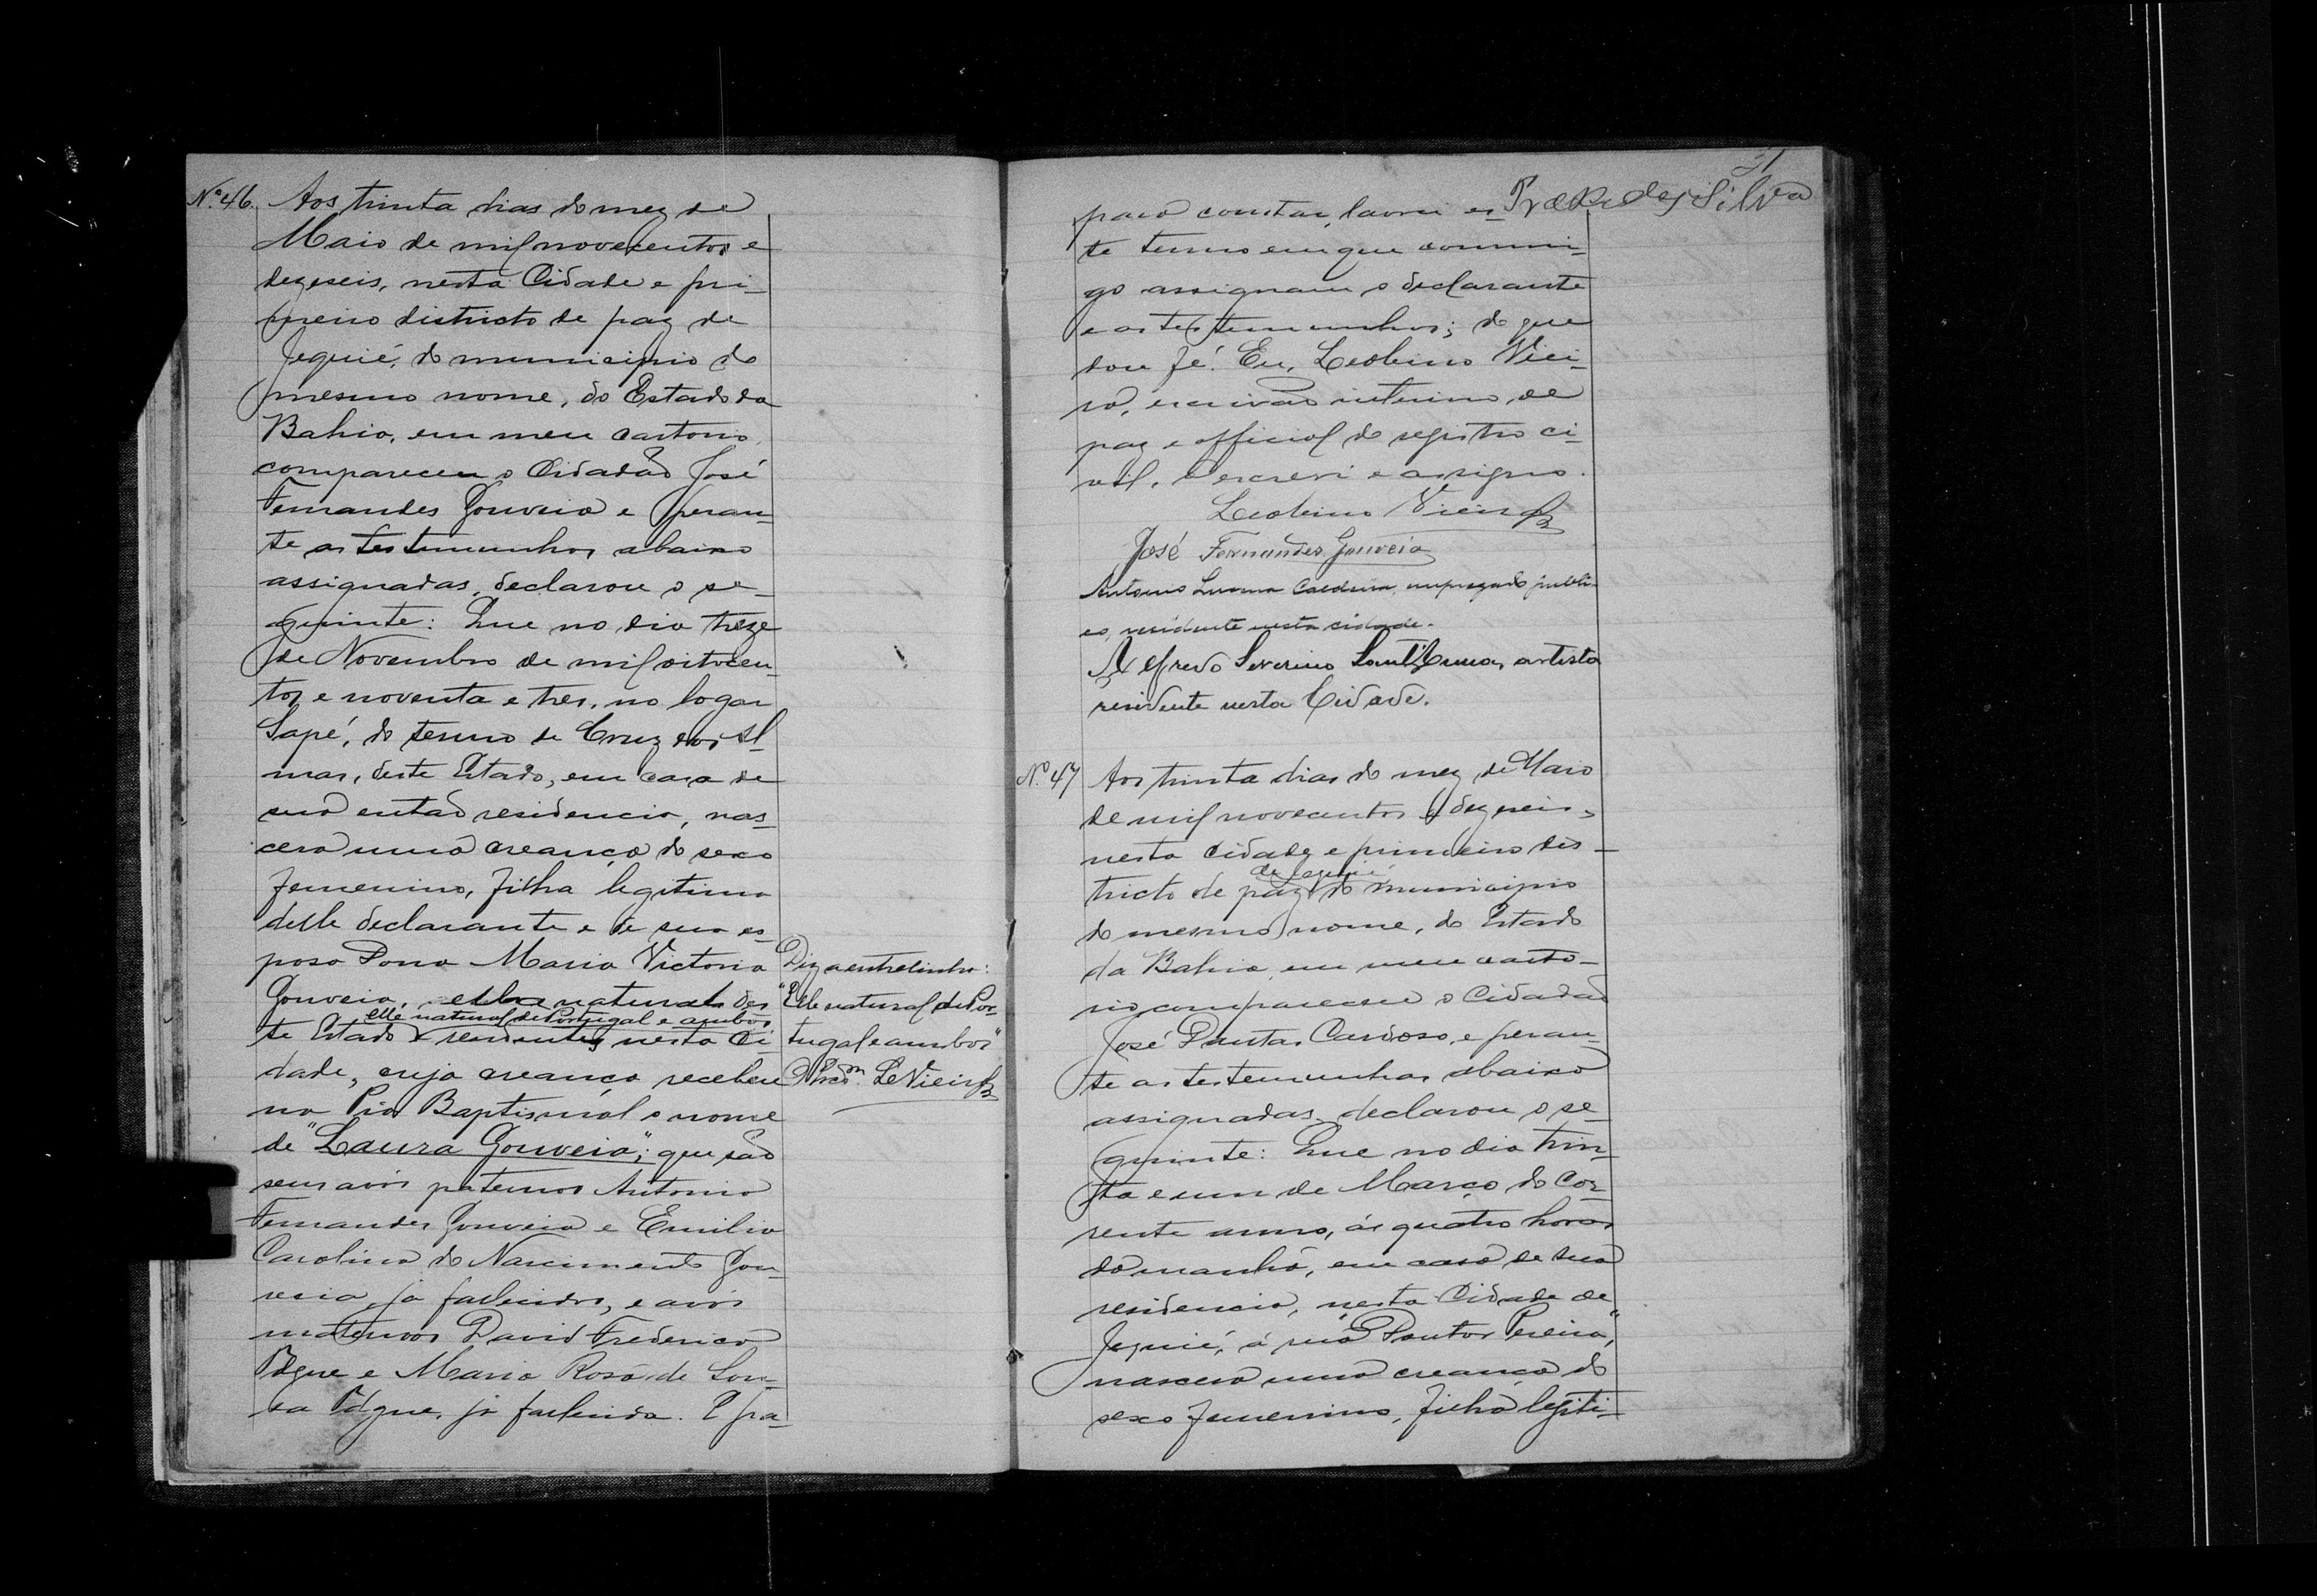 Nº 46. Aos trinta dias do mez de
Maio de mil novecentos e
dezeseis, nesta Cidade e pri-
meiro districto de paz de
Jequié, do municipio do
mesmo nome, do Estado da
Bahia, em meu cartorio
compareceu o Cidadão José
Fernandes Gouveia e peran-
te as testemunhas abaixo
assignadas, declarou o se-
guinte: Que no dia treze
de Novembro de mil oitocen-
tos e noventa e tres, no logar
Sapé, do termo de Cruz das Al-
mas, deste Estado, em casa de
sua então residencia, nas-
cera uma creança do sexo
femenino, filha legitima
delle declarante e de sua es-
posa Dona Maria Victoria
Gouveia, ella natural des
elle natural de Portugal e ambos
te Estado e residentes nesta Ci-
dade, cuja creança recebeu
na Pia Baptismal o nome
de "Laura Gouveia"; que são
seus avós paternos Antonio
Fernandes Gouveia e Emilia
Carolina do Nascimento Gou-
veia, já fallecidos, e avós
maternos David Frederico
e Maria Rosa de Sou-
sa já fallecida. E pa-
Diz a entrelinha:
"Elle natural de Por-
tugal e ambos"
LeVieira
31
Silva
para constar, lavrei es-
te termo em que commi-
go assignam o declarante
e as testemunhas; do que
dou fé. Eu, Leolino Viei-
ra, escrivão interino de
paz e official do registro ci-
vil, o escrevi e assigno.
Leolino Vieira
José Fernandes Gouveia
Antonio Lucena Caldeira, empregado publi-
co, residente nesta cidade.
Alfredo Severino Sant'Anna, artista
residente nesta Cidade.
Nº 47 Aos trinta dias do mez de Maio
de mil novecentos e dezeseis,
nesta cidade e primeiro dis-
de Jequié
tricto de paz do municipio
do mesmo nome, do Estado
da Bahia, em meu carto-
rio compareceu o Cidadão
José Dantas Cardoso, e peran-
te as testemunhas abaixo
assignadas, declarou o se-
guinte: Que no dia trin-
ta e um de Março do cor-
rente anno, ás quatro horas
da manhã, em casa de sua
residencia, nesta Cidade de
Jequié, á rua "Pereira",
nascera uma creança do
sexo femenino, filha legiti-